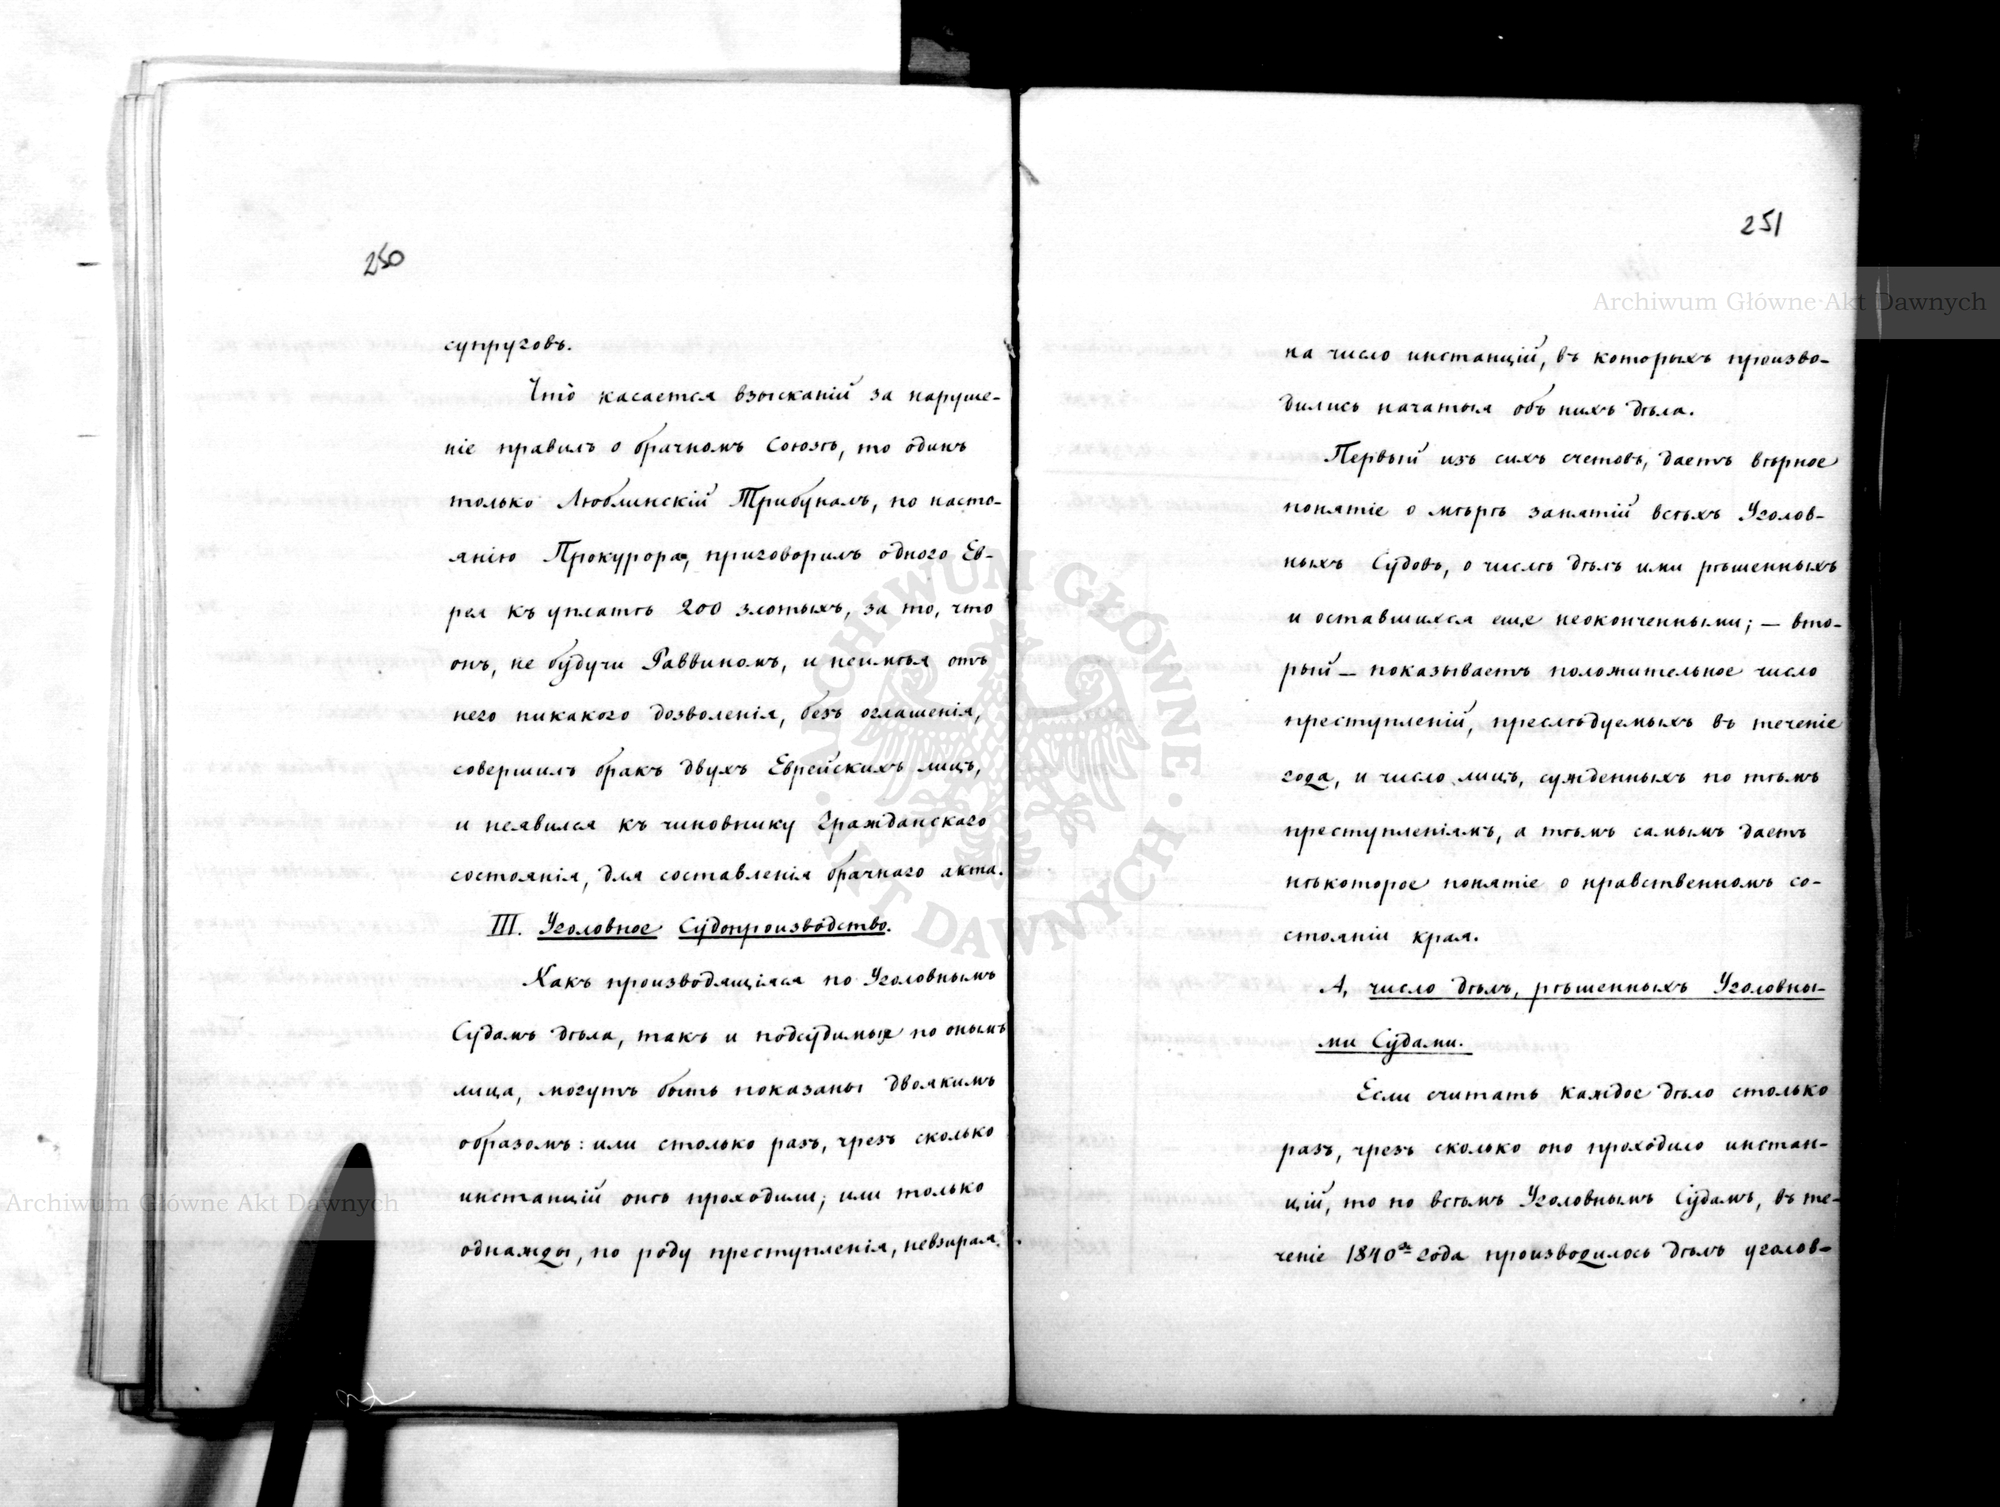 250
супруговъ.
Что касается взысканій за наруше-
ніе правилъ о брачномъ Союзѣ, то одинъ
только Люблинскій Трибуналъ, по насто-
янію Прокурора, приговорилъ одного Ев-
рея къ уплатѣ 200 злотыхъ, за то, что
онъ, не будучи Раввиномъ, и неимѣя отъ
него никакого дозволенія, безъ оглашенія,
совершилъ бракъ двухъ Еврейскихъ лицъ,
и неявился къ чиновнику Гражданскаго
состоянія, для составленія брачнаго акта.
III. Уголовное Судопроизводство.
Какъ производящіяся по Уголовнымъ
Судамъ дѣла, такъ и подсудимые по онымъ
лица, могутъ быть показаны двоякимъ
образомъ: или столько разъ, чрезъ сколько
инстанцій онѣ проходили; или только
однажды, по роду преступленія, невзирая
251
на число инстанцій, въ которыхъ произво-
дились начатыя объ нихъ дѣла.
Первый изъ сихъ счетовъ, даетъ вѣрное
понятіе о мѣрѣ занятій всѣхъ Уголов-
ныхъ Судовъ, о числѣ дѣлъ ими рѣшенныхъ
и оставшихся еще неоконченными; — вто-
рый — показываетъ положительное число
преступленій, преслѣдуемыхъ въ теченіе
года, и число лицъ, сужденныхъ по тѣмъ
преступленіямъ, а тѣмъ самымъ даетъ
нѣкоторое понятіе о нравственномъ со-
стояніи края.
А, число дѣлъ, рѣшенныхъ Уголовны-
ми Судами.
Если считать каждое дѣло столько
разъ, чрезъ сколько оно проходило инстан-
цій, то по всѣмъ Уголовнымъ Судамъ, въ те-
ченіе 1840 года производилось дѣлъ уголов-
Archiwum Główne Akt Dawnych
Archiwum Główne Akt Dawnych
ARCHIWUM GŁÓWNE
AKT DAWNYCH